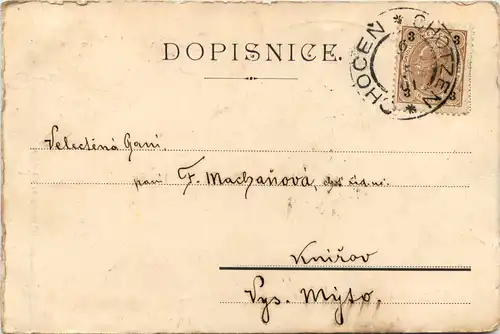 DOPISNICE.
CHOCEN * CHOTZEN *
3 3
3 3
Velectěná Paní
paní F. Machaňová,
Knířov
Vys. Mýto.